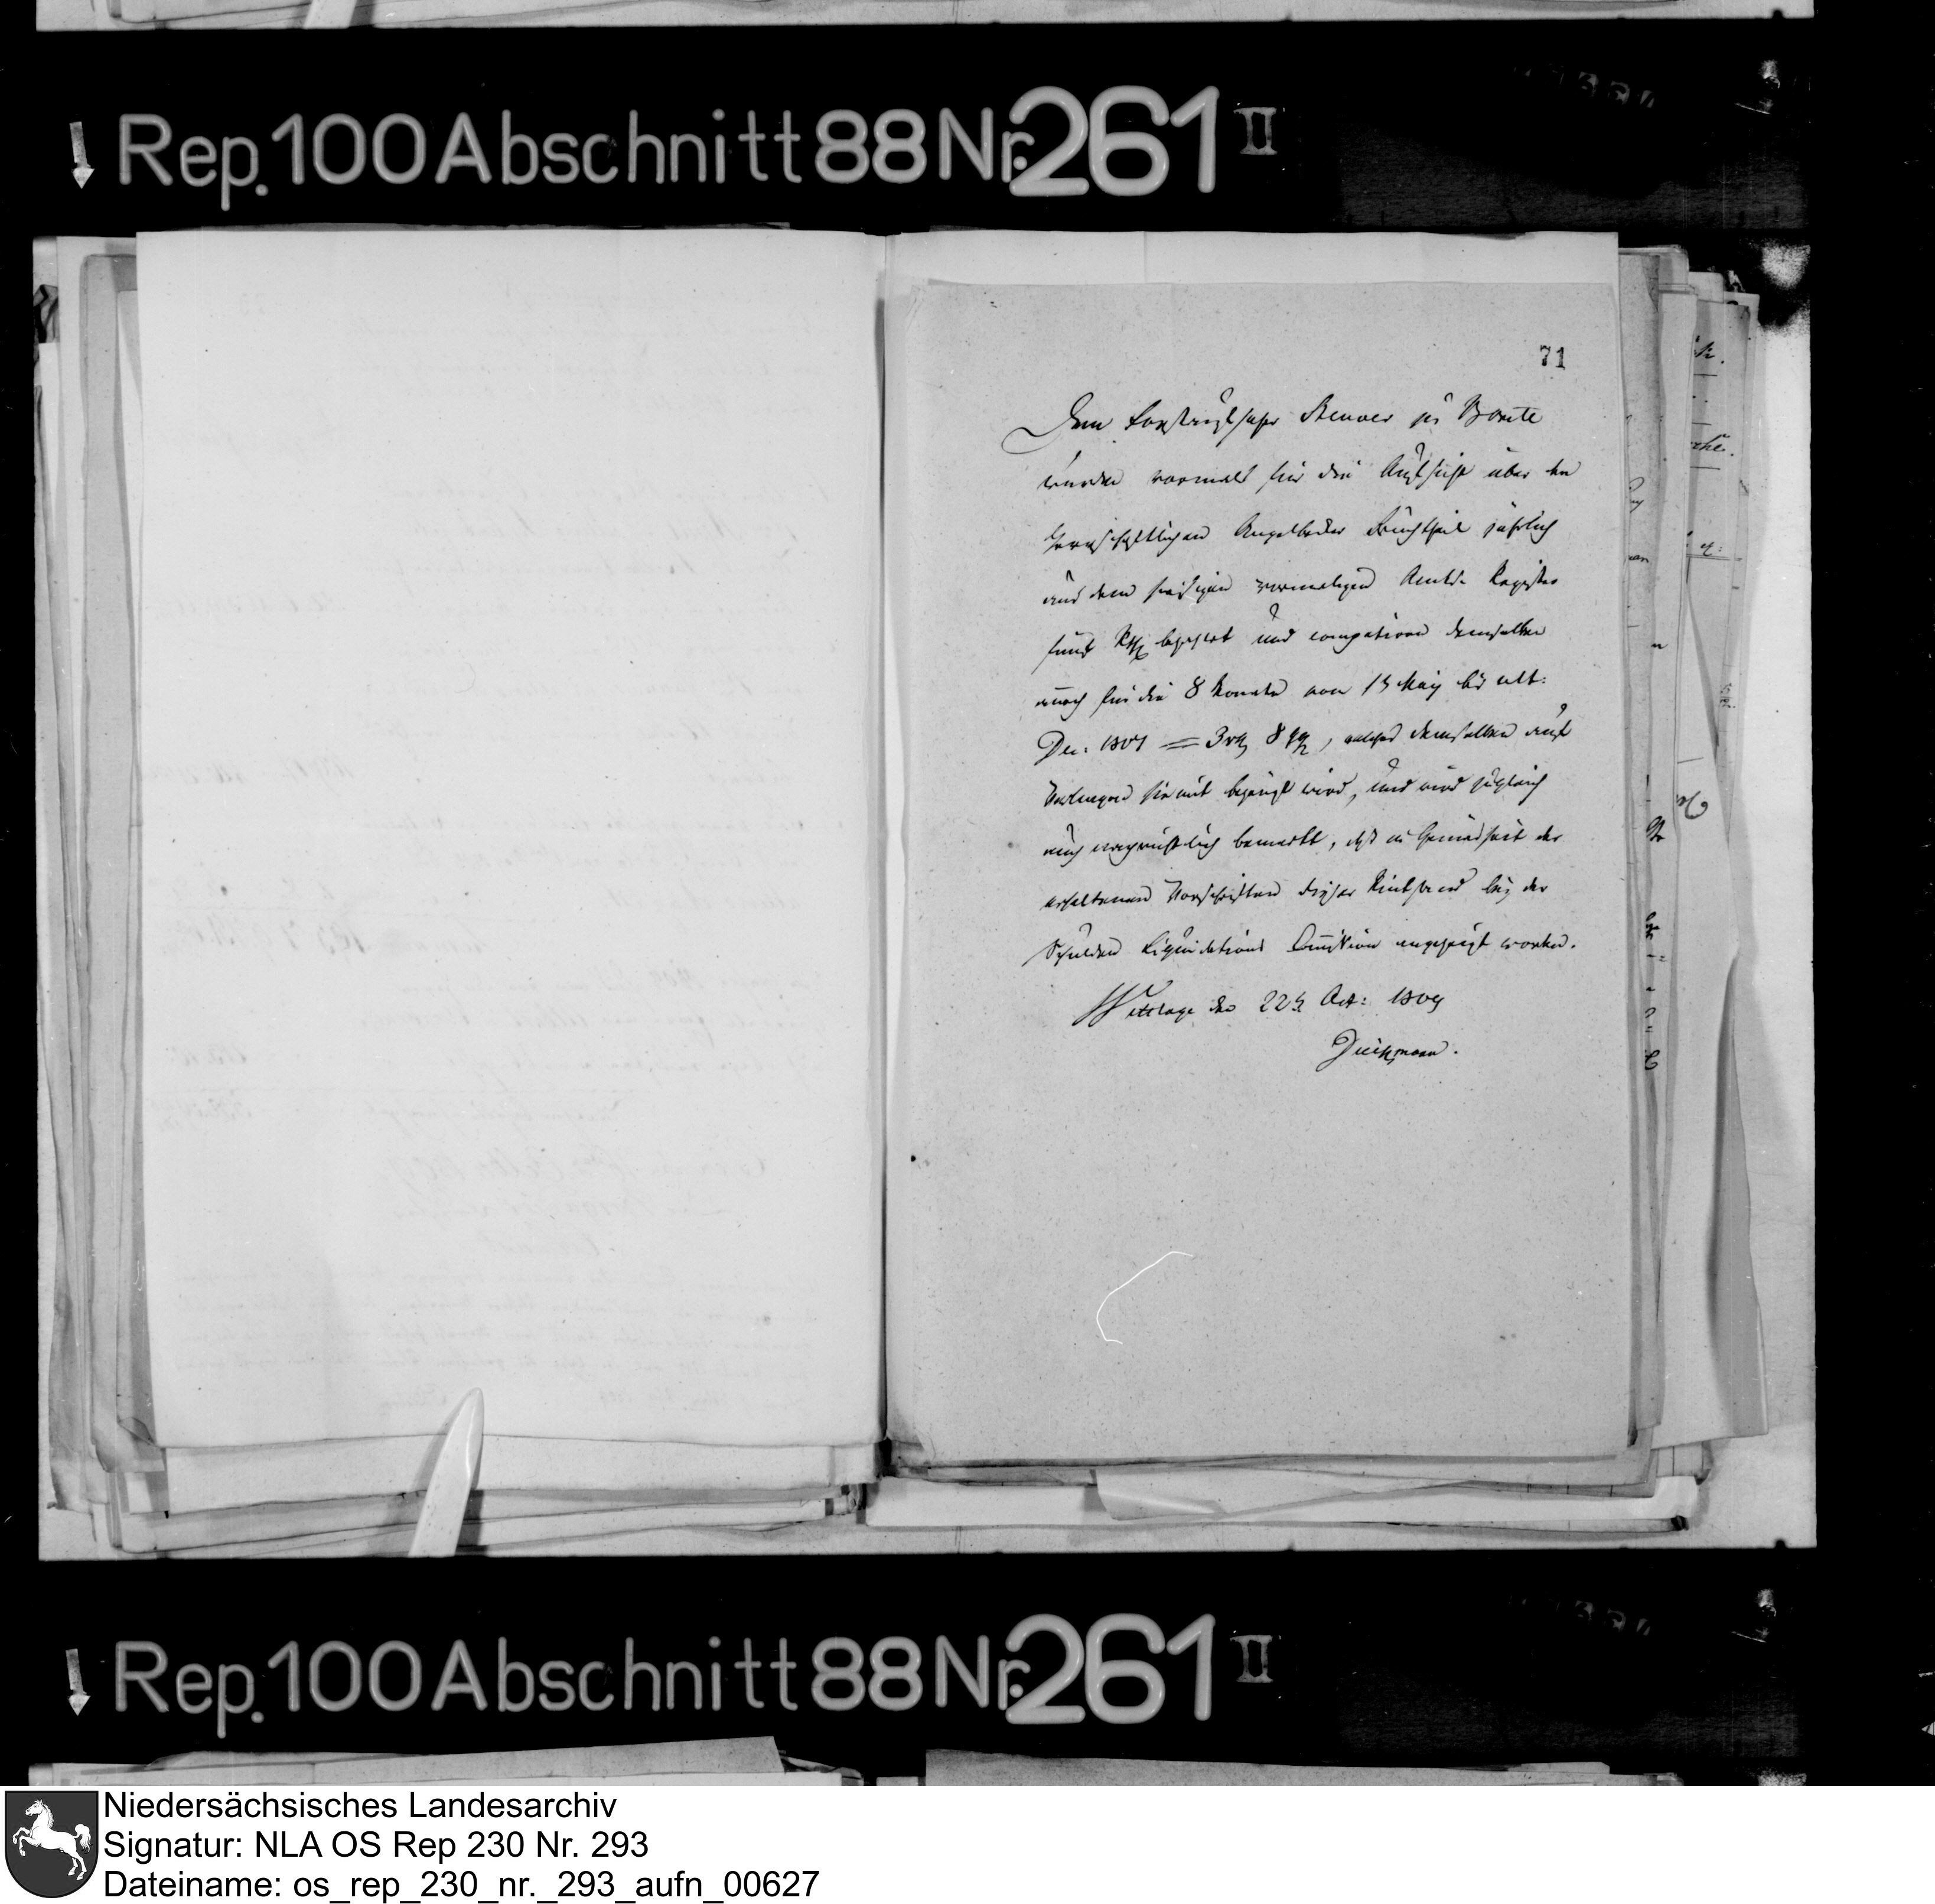 ↓ Rep. 100 Abschnitt 88 Nr. 261 II
71
Dem Forstaufseher Stuver zu Borite
wurden vormals für die Aufsicht über den
herrschaftlichen Angelbecker Bruchtheil jährlich
aus dem hiesigen vormaligen Amts Register
fünf Rthlr bezahlt und competiren demselben
annoch für die 8 Monate vom 1 May bis ult:
Dec. 1807 = 3 rthlr 8 ggr, welches demselben auf
Verlangen hiemit bezeugt wird, und wird zugleich
auch ausdrücklich bemerkt, daß in Gemäsheit der
erhaltenen Vorschriften dieser Rückstand bey der
Schulden Liquidations Commission angezeigt worden.
Wittlage den 22t Oct: 1809
↓ Rep. 100 Abschnitt 88 Nr. 261 II
Niedersächsisches Landesarchiv
Signatur: NLA OS Rep 230 Nr. 293
Dateiname: os_rep_230_nr._293_aufn_00627